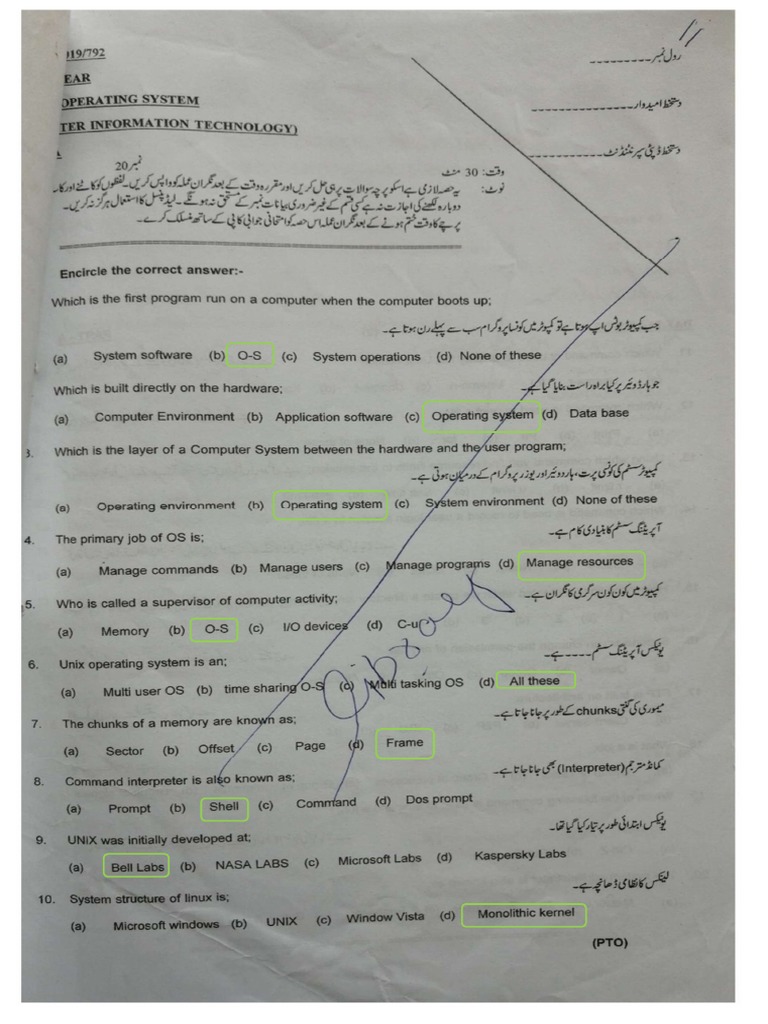 019/792
EAR
OPERATING SYSTEM
TER INFORMATION TECHNOLOGY)
رول نمبر
دستخط امیدوار
دستخط ڈپٹی سپرنٹنڈنٹ
وقت: 30 منٹ نمبر 20
نوٹ: یہ حصہ لازمی ہے اسکو پرچہ سوالات پر ہی حل کریں اور مقررہ وقت کے بعد نگران عملہ کو واپس کریں۔ لفظوں کو کاٹنے اور کا۔
دوبارہ لکھنے کی اجازت نہ ہے کسی قسم کے غیر ضروری بیانات نمبر کے مستحق نہ ہونگے۔ لیڈ پنسل کا استعمال ہرگز نہ کریں۔
پرچے کا وقت ختم ہونے کے بعد نگران عملہ اس حصہ کو امتحانی جوابی کاپی کے ساتھ منسلک کرے۔
Encircle the correct answer:-
Which is the first program run on a computer when the computer boots up;
جب کمپیوٹر بوٹس اپ ہوتا ہے تو کمپیوٹر میں کونسا پروگرام سب سے پہلے رن ہوتا ہے۔
(a) System software (b) O-S (c) System operations (d) None of these
Which is built directly on the hardware; جو ہارڈ وئیر پر کیا براہ راست بنایا گیا ہے۔
(a) Computer Environment (b) Application software (c) Operating system (d) Data base
3. Which is the layer of a Computer System between the hardware and the user program;
کمپیوٹر سسٹم کی کونسی پرت، ہارڈ وئیر اور یوزر پروگرام کے درمیان ہوتی ہے۔
(a) Operating environment (b) Operating system (c) System environment (d) None of these
4. The primary job of OS is; آپریٹنگ سسٹم کا بنیادی کام ہے۔
(a) Manage commands (b) Manage users (c) Manage programs (d) Manage resources
5. Who is called a supervisor of computer activity; کمپیوٹر میں کون کون سرگرمی کا نگران ہے۔
(a) Memory (b) O-S (c) I/O devices (d) C-u
6. Unix operating system is an; یونیکس آپریٹنگ سسٹم ---- ہے۔
(a) Multi user OS (b) time sharing O-S (c) Multi tasking OS (d) All these
7. The chunks of a memory are known as; میموری کی گنتی chunks کے طور پر جانا جاتا ہے۔
(a) Sector (b) Offset (c) Page (d) Frame
8. Command interpreter is also known as; کمانڈ مترجم (Interpreter) بھی جانا جاتا ہے۔
(a) Prompt (b) Shell (c) Command (d) Dos prompt
9. UNiX was initially developed at; یونیکس ابتدائی طور پر تیار کیا گیا تھا۔
(a) Bell Labs (b) NASA LABS (c) Microsoft Labs (d) Kaspersky Labs
10. System structure of linux is; لینکس کا نظامی ڈھانچہ ہے۔
(a) Microsoft windows (b) UNIX (c) Window Vista (d) Monolithic kernel
(PTO)